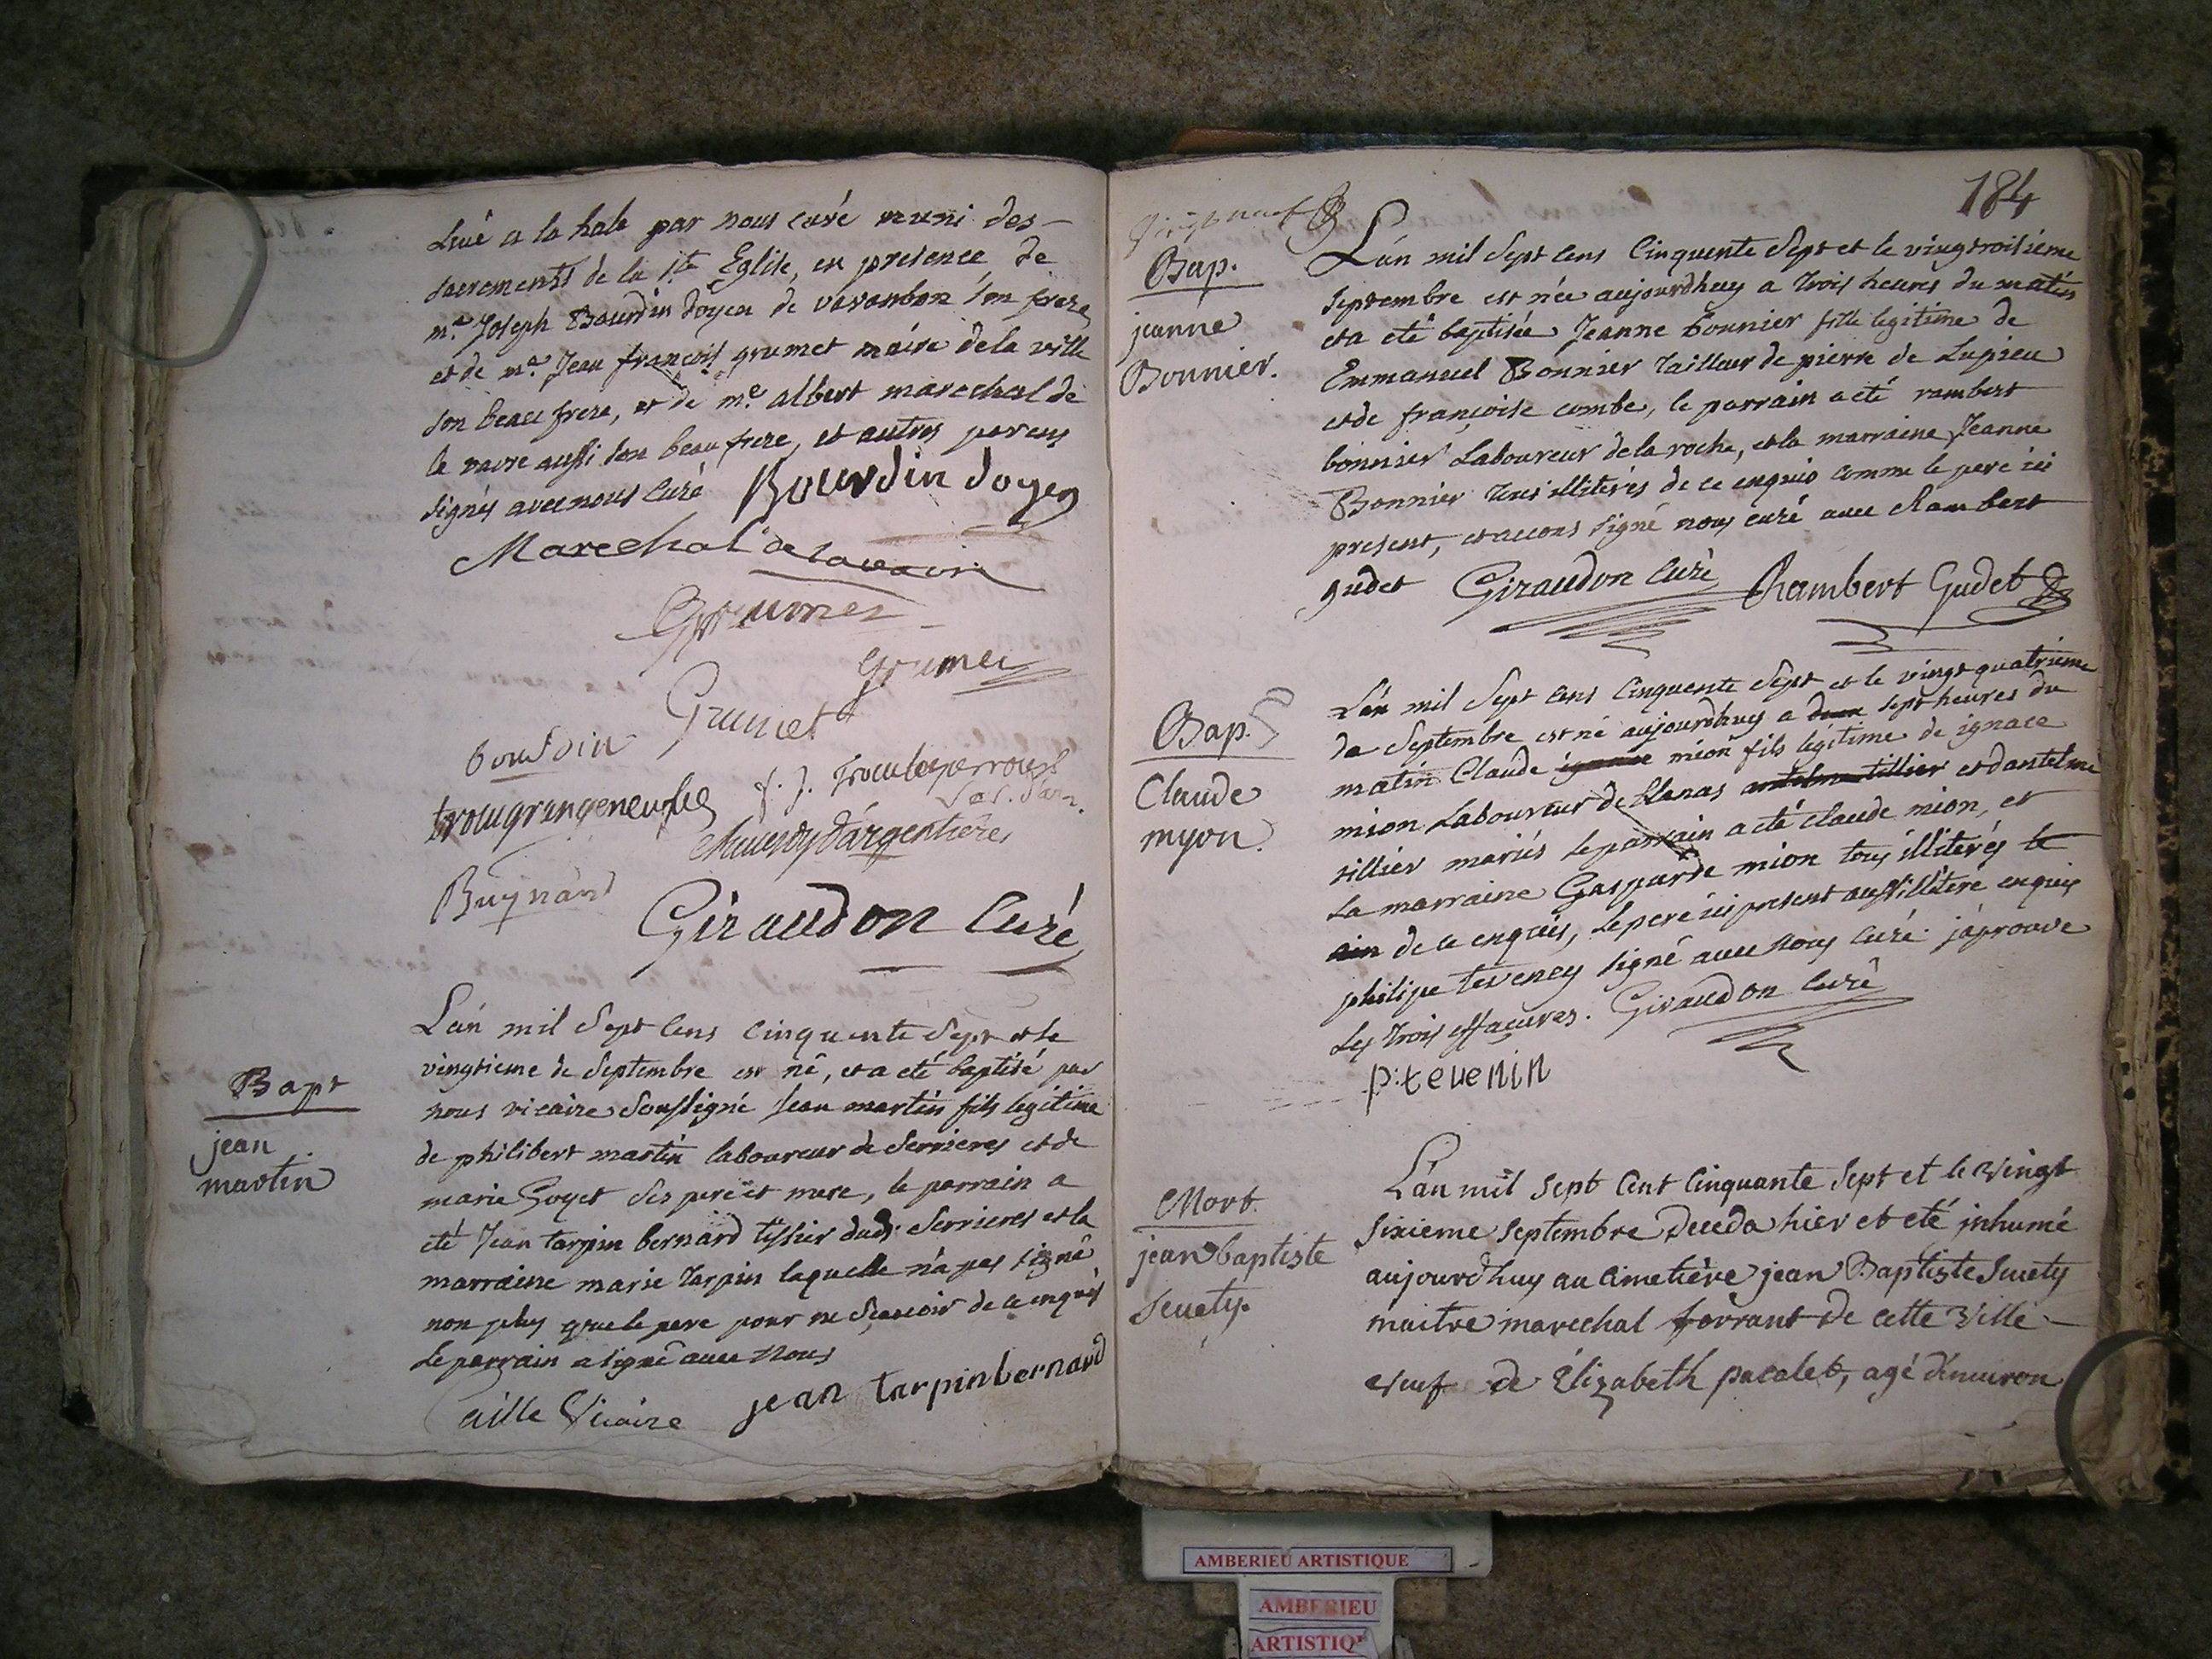 Livé a la hale par nous curé muni des
sacrements de la ste Eglise, en presence de
me. Joseph Bourdin doyen de varanbon son frere
et de me. Jean françois grumet maire dela ville
son beau frere, et de me. albert marechal de
la vavre aussi son beau frere, et autres parens
signés avec nous curé Bourdin doyen
Marechal de lavavre
Grumet
grumet
Grumet
bourdin
trocugrangeneufve
Buynand
Giraudon Curé
Bapt
jean
martin
L'an mil Sept Cens Cinquente Sept et le
vingtieme de Septembre est né, et a eté baptisé par
nous vicaire Soussigné Jean martin fils legitime
de philibert martin laboureur de Serrieres et de
marie Goyet Ses pere et mere, le parrain a
eté Jean tarpin bernard tissier dudt Serrieres et la
marraine marie tarpin laquelle n'a pas signé
non plus que le pere pour ne Sçavoir de ce enquis
Le parrain a signé avec Nous
Caille Vicaire jean tarpinbernard
184
Bap.
jeanne
Bonnier.
L'an mil Sept Cens Cinquente Sept et le vingtroisieme
Septembre est née aujourdhuy a trois heures du matin
et a eté baptisée Jeanne bonnier fille legitime de
Emmanuel Bonnier tailleur de pierre de Lupieu
et de françoise combe, le parrain a eté rambert
bonnier Laboureur de la roche, et la marraine Jeanne
Bonnier tous illiterés de ce enquis comme le pere ici
present, et avons signé nous curé avec Rambert
gudet Giraudon Curé Rambert Gudet
Bap.
Claude
myon.
L'an mil Sept Cens Cinquente Sept et le vingt quatrieme
de Septembre est né aujourdhuy a deux sept heures du
matin Claude ignace mion fils legitime de ignace
mion Laboureur de Blanas antelme tillier et dantelme
tillier mariés le parrain a eté claude mion, et
La marraine Gasparde mion tous illiterés le
ain de ce enquis, Le pere ici present aussi illiteré enquis
philipe teveney signé avec Nous Curé. j'aprouve
Les trois effaçures. Giraudon Curé
p: tevenin
Mort.
jean baptiste
Seuety.
L'an mil Sept Cent Cinquante Sept et le vingt
Sixieme Septembre deceda hier et eté inhumé
aujourdhuy au Cimetière jean Baptiste Seuety
maitre marechal ferrant de cette ville
veuf de Elizabeth pacalet, agé d'environ
AMBERIEU ARTISTIQUE
AMBERIEU
ARTISTIQ